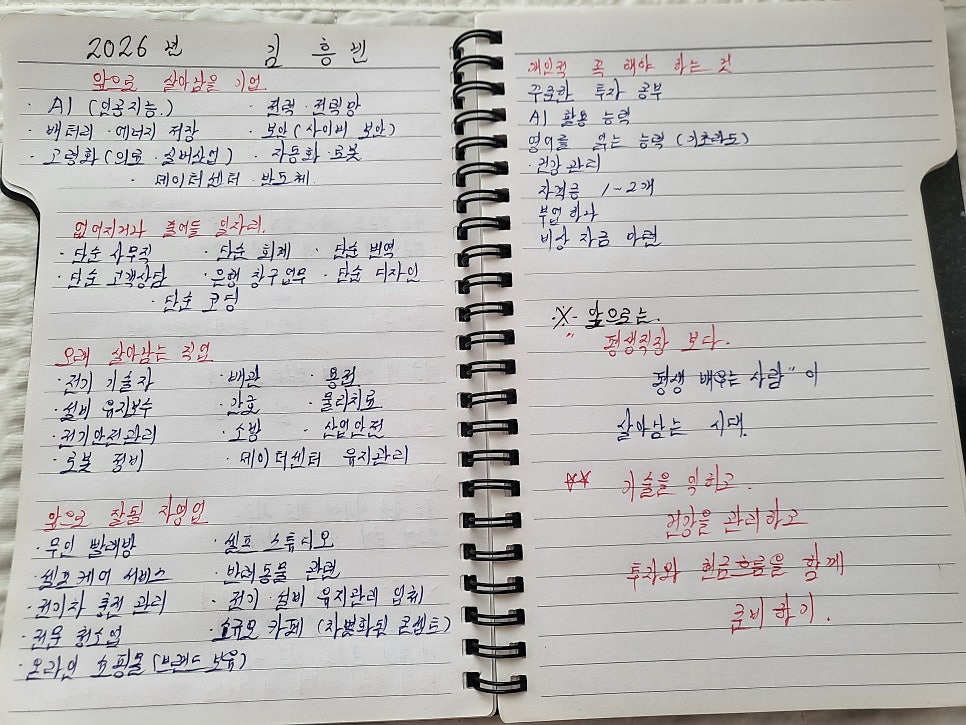 2026년 김흥빈
앞으로 살아남을 기업.
· AI (인공지능.) · 전력 · 전력망
· 배터리 · 에너지 저장 · 보안 (사이버 보안)
· 고령화 (의료 · 실버산업) · 자동화 · 로봇
· 데이터센터 · 반도체.
없어지거나 줄어들 일자리.
· 단순 사무직 · 단순 회계 · 단순 번역
· 단순 고객상담 · 은행 창구업무 · 단순 디자인
· 단순 코딩
오래 살아남는 직업
· 전기 기술자 · 배관 · 용접
· 설비 유지보수 · 간호 · 물리치료
· 전기안전관리 · 소방 · 산업안전
· 로봇 정비 · 데이터센터 유지관리
앞으로 잘될 자영업
· 무인 빨래방 · 셀프 스튜디오
· 셀프케어 서비스 · 반려동물 관련
· 전기차 충전 관리 · 전기 · 설비 유지관리 업체
· 전문 청소업 · 소규모 카페 (차별화된 콘셉트)
· 온라인 쇼핑몰 (브랜드 보유)
개인적 꼭 해야 하는 것
꾸준한 투자 공부
AI 활용 능력
영어를 읽는 능력 (기초라도)
· 건강관리
자격증 1-2개
부업하나
비상 자금 마련
※ 앞으로는.
" 평생직장 보다.
평생 배우는 사람" 이
살아남는 시대.
☆☆ 기술을 익히고.
건강을 관리하고
투자와 현금흐름을 함께
준비하기.